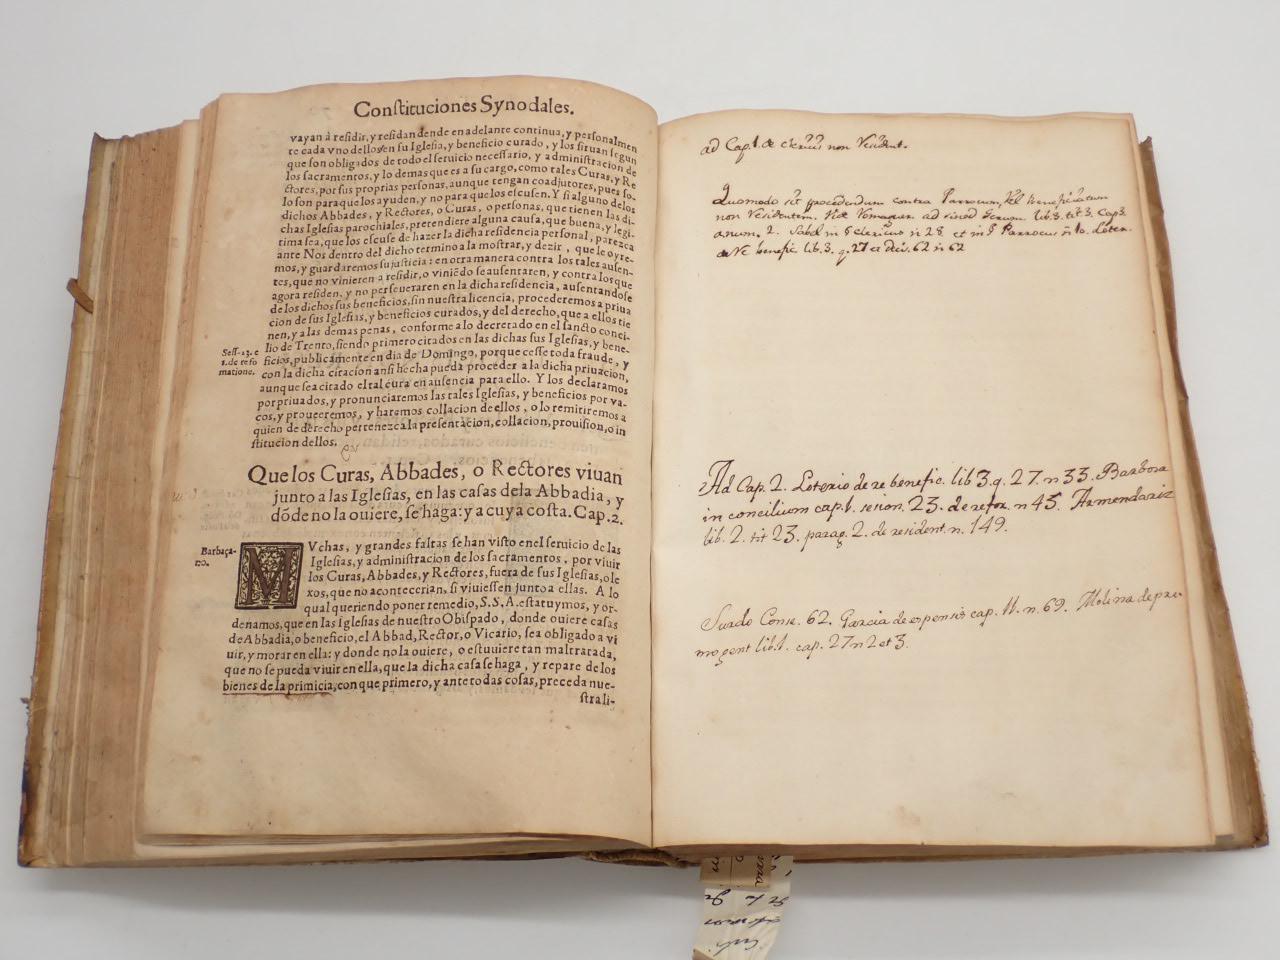 Constituciones Synodales.
vayan à residir, y residan dende en adelante continua, y personalmen
te cada vno dellos en su Iglesia, y beneficio curado, y los siruan segun
que son obligados de todo el seruicio necessario, y administracion de
los sacramentos, y lo demas que es a su cargo, como tales Curas, y Re
ctores, por sus proprias personas, aunque tengan coadjutores, pues so-
lo son para que los ayuden, y no para que los escusen. Y si alguno de los
dichos Abbades, y Rectores, o Curas, o personas, que tienen las di-
chas Iglesias parochiales, pretendiere alguna causa, que buena, y legi-
tima sea, que los escuse de hazer la dicha residencia personal, parezca
ante Nos dentro del dicho termino a la mostrar, y dezir, que le oyre-
mos, y guardaremos su justicia: en otra manera contra los tales ausen-
tes, que no vinieren a residir, o viniẽdo se ausentaren, y contra los que
agora residen, y no perseueraren en la dicha residencia, ausentandose
de los dichos sus beneficios, sin nuestra licencia, procederemos a priua
cion de sus Iglesias, y beneficios curados, y del derecho, que a ellos tie
nen, y a las demas penas, conforme a lo decretado en el sancto conci-
lio de Trento, siendo primero citados en las dichas sus Iglesias, y bene-
ficios, publicamente en dia de Domingo, porque cesse toda fraude, y
con la dicha citacion ansi hecha pueda proceder a la dicha priuacion,
aunque sea citado el tal cura en ausencia para ello. Y los declaramos
por priuados, y pronunciaremos las tales Iglesias, y beneficios por va-
cos, y proueeremos, y haremos collacion de ellos, o lo remitiremos a
quien de derecho pertenezca la presentacion, collacion, prouision, o in
stitucion dellos.
Sess. 23. c
1. de refo
matione.
Que los Curas, Abbades, o Rectores viuan
junto a las Iglesias, en las casas dela Abbadia, y
dõde no la ouiere, se haga: y a cuya costa. Cap. 2.
Barbaça-
no.
MVchas, y grandes faltas se han visto en el seruicio de las
Iglesias, y administracion de los sacramentos, por viuir
los Curas, Abbades, y Rectores, fuera de sus Iglesias, o le
xos, que no acontecerian, si viuiessen junto a ellas. A lo
qual queriendo poner remedio, S. S. A. estatuymos, y or-
denamos, que en las Iglesias de nuestro Obispado, donde ouiere casas
de Abbadia, o beneficio, el Abbad, Rector, o Vicario, sea obligado a vi
uir, y morar en ella: y donde no la ouiere, o estuuiere tan maltratada,
que no se pueda viuir en ella, que la dicha casa se haga, y repare de los
bienes de la primicia, con que primero, y ante todas cosas, preceda nue-
stra li-
ad Cap. 1. de clericis non resident.
Quomodo sit procedendum contra Parrocum, vel Beneficiatum
non residentem. Vide ad sinod lib. 3. tit 3. Cap 3.
anum. 2. Sabel in § clericus n 28 et in § Parrocus n 10. Loter.
de Re benefic lib. 3. q. 27 et Decis. 62 n 62
Ad Cap. 2. Loterio de re benefic. lib 3. q. 27. n 33. Barbosa
in concilium cap. 1. sesion. 23. de refor. n 45. Armendariz
lib. 2. tit 23. parag. 2. de resident. n. 149.
Surdo Cons. 62. Garcia de expensis cap. 11. n. 69. Molina de pri-
mogent lib. 1. cap. 27 n 2 et 3.